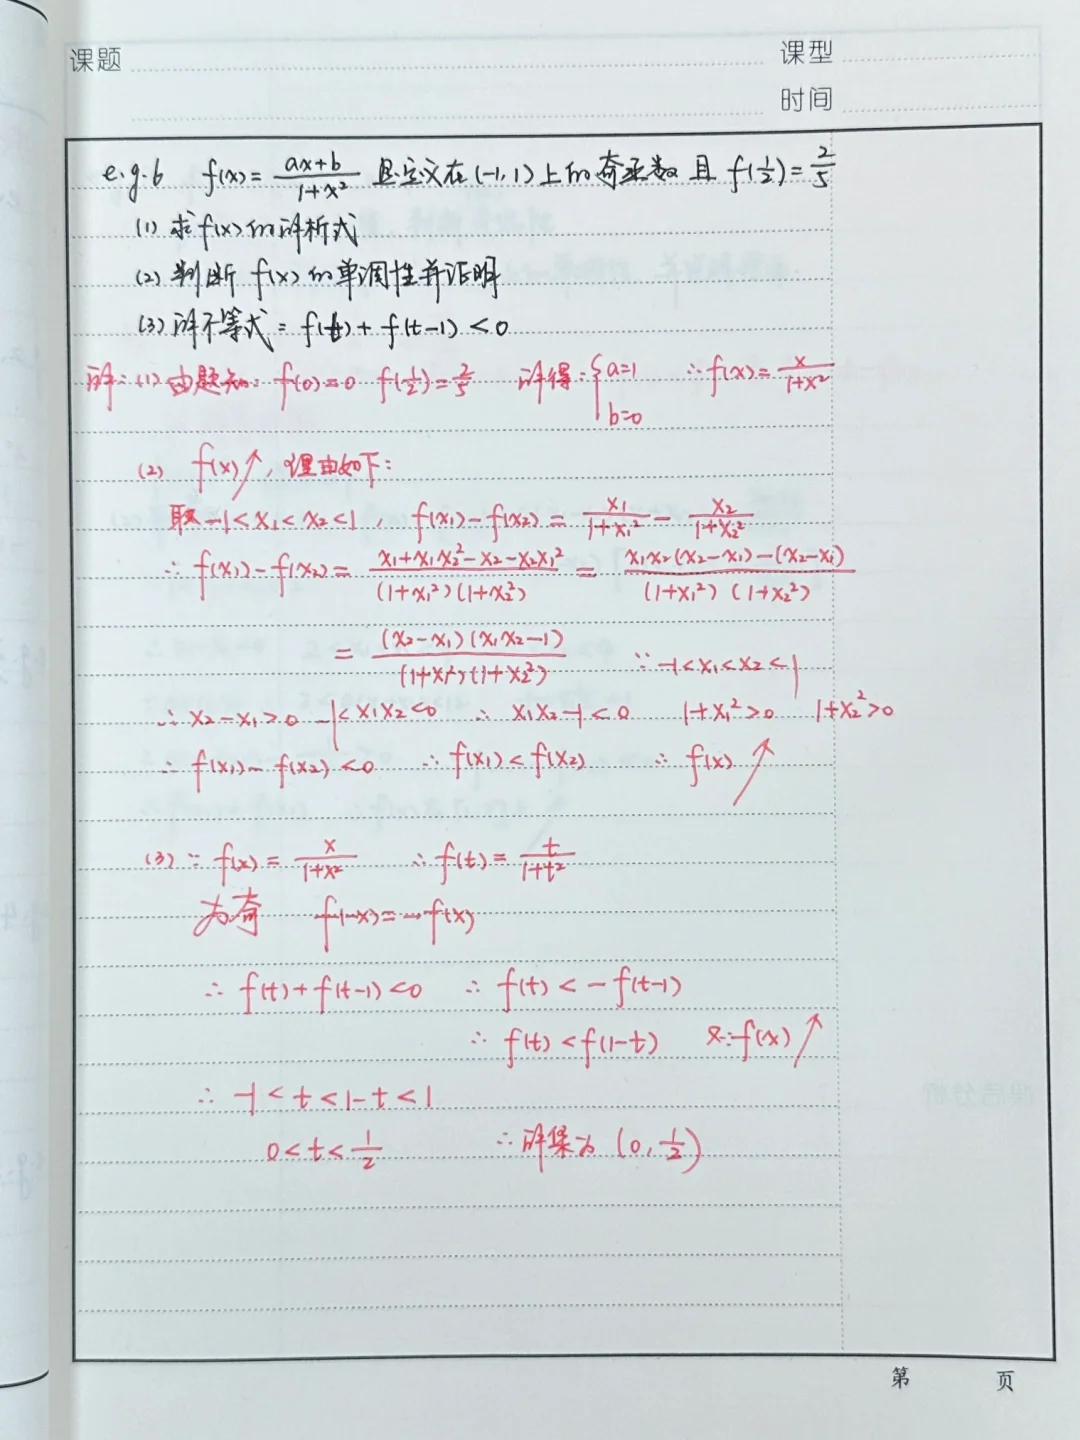 课题
课型
时间
e.g.6 f(x)=(ax+b)/(1+x²) 是定义在(-1,1)上的奇函数 且 f(1/2)=2/5
(1) 求f(x)的解析式
(2) 判断 f(x)的单调性并证明
(3) 解不等式: f(t)+f(t-1)<0
解:(1) 由题知: f(0)=0 f(1/2)=2/5 解得:{a=1 ∴f(x)=x/(1+x²)
b=0
(2) f(x)↗,理由如下:
取-1<x₁<x₂<1, f(x₁)-f(x₂)=x₁/(1+x₁²)-x₂/(1+x₂²)
∴f(x₁)-f(x₂)=(x₁+x₁x₂²-x₂-x₂x₁²)/((1+x₁²)(1+x₂²))=(x₁x₂(x₂-x₁)-(x₂-x₁))/((1+x₁²)(1+x₂²))
=(x₂-x₁)(x₁x₂-1)/((1+x₁²)(1+x₂²)) ∵-1<x₁<x₂<1
∴x₂-x₁>0 -1<x₁x₂<0 ∴x₁x₂-1<0 1+x₁²>0 1+x₂²>0
∴f(x₁)-f(x₂)<0 ∴f(x₁)<f(x₂) ∴f(x)↗
(3) ∵f(x)=x/(1+x²) ∴f(t)=t/(1+t²)
为奇 f(-x)=-f(x)
∴f(t)+f(t-1)<0 ∴f(t)<-f(t-1)
∴f(t)<f(1-t) 又∵f(x)↗
∴-1<t<1-t<1
0<t<1/2 ∴解集为(0,1/2)
第 页